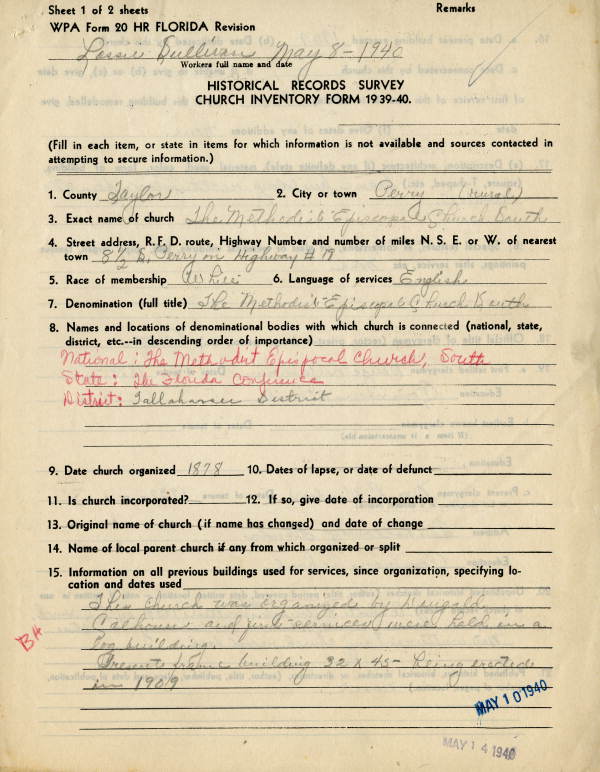 Sheet 1 of 2 sheets Remarks
WPA Form 20 HR FLORIDA Revision
Lossie Sullivan May 8-1940
Workers full name and date
HISTORICAL RECORDS SURVEY
CHURCH INVENTORY FORM 1939-40.
(Fill in each item, or state in items for which information is not available and sources contacted in
attempting to secure information.)
1. County Taylor 2. City or town Perry (rural)
3. Exact name of church The Methodist Episcopal Church South
4. Street address, R. F. D. route, Highway Number and number of miles N. S. E. or W. of nearest
town 8 1/2 S. Perry on Highway # 19
5. Race of membership White 6. Language of services English
7. Denomination (full title) The Methodist Episcopal Church South
8. Names and locations of denominational bodies with which church is connected (national, state,
district, etc.--in descending order of importance)
National: The Methodist Episcopal Church, South
State: The Florida Conference
District: Tallahassee District
9. Date church organized 1878 10. Dates of lapse, or date of defunct
11. Is church incorporated? 12. If so, give date of incorporation
13. Original name of church (if name has changed) and date of change
14. Name of local parent church if any from which organized or split
15. Information on all previous buildings used for services, since organization, specifying lo-
cation and dates used
This church was organized by Dugald
Calhoun and first services were held in a
log building.
Present frame building 32 x 45- Being erected
in 1909
BH
MAY 10 1940
MAY 14 1940